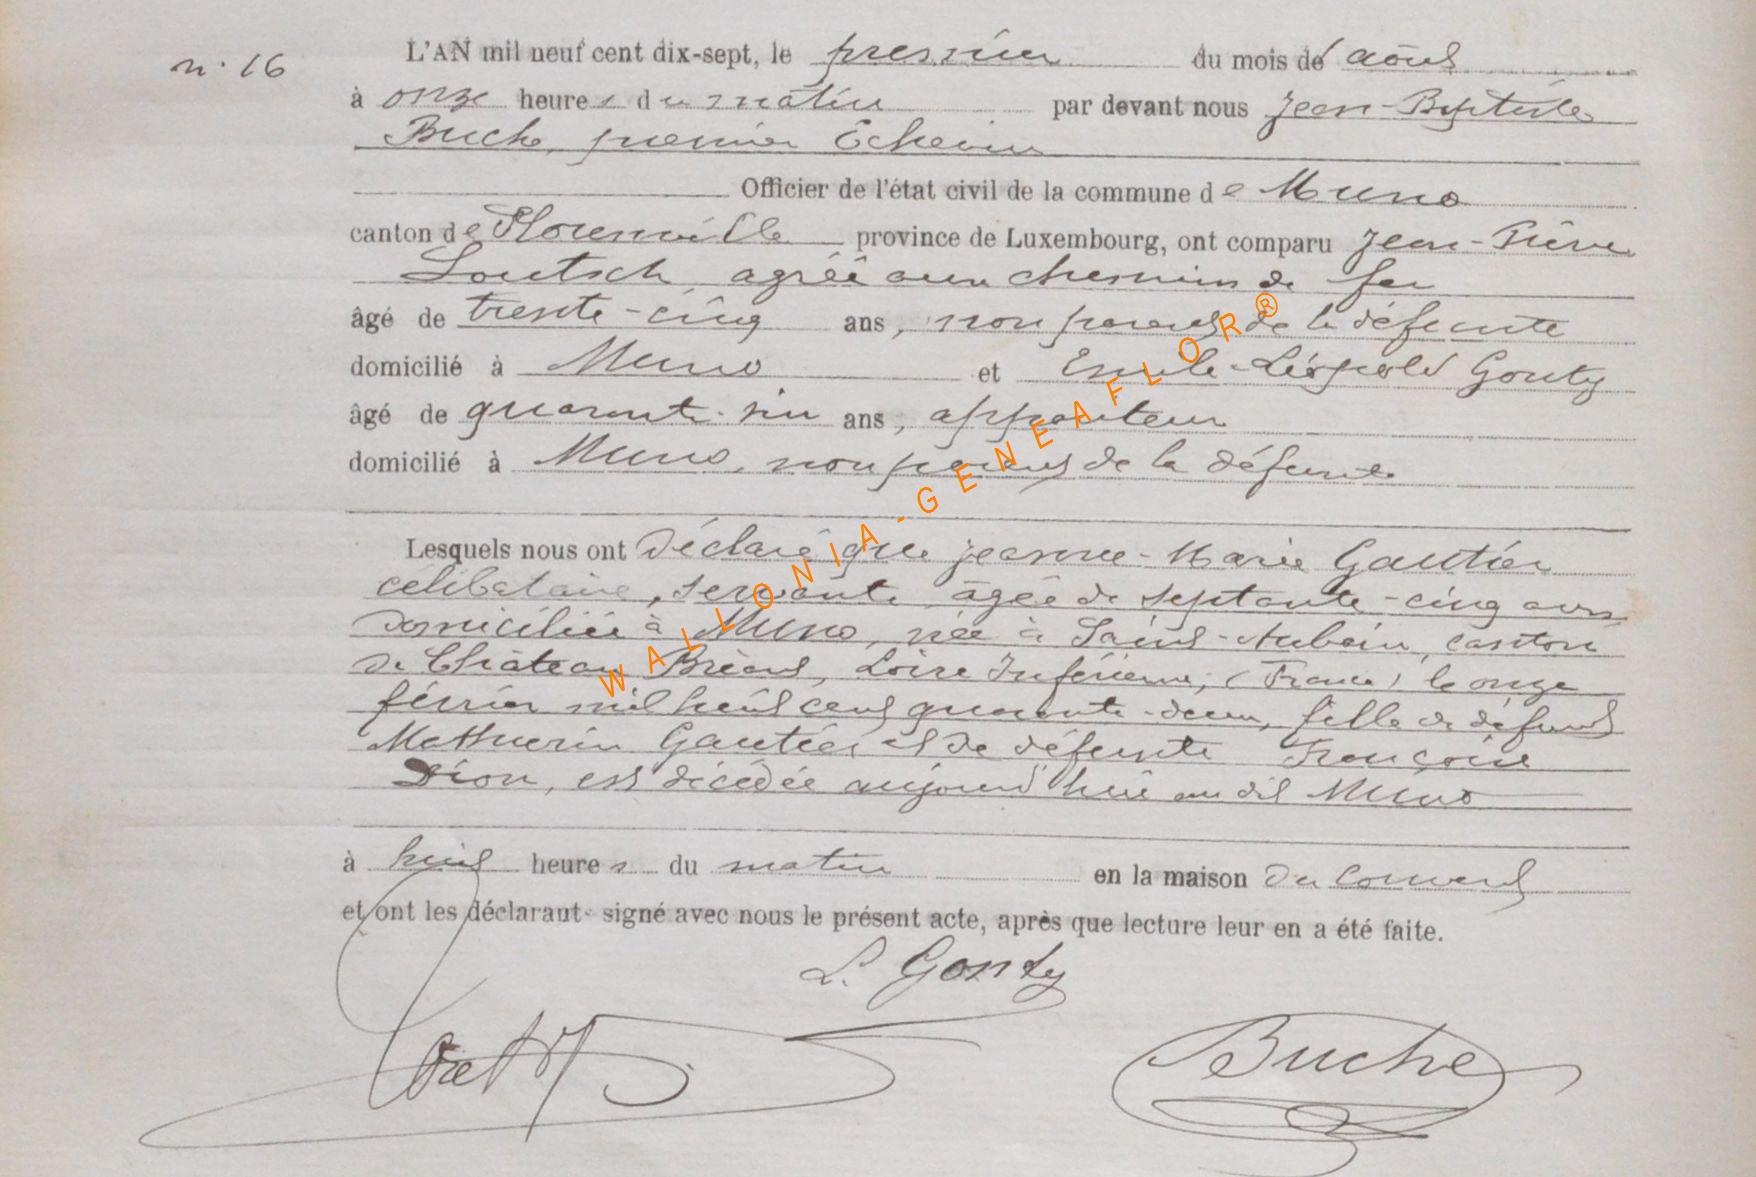 n° 16
L'AN mil neuf cent dix-sept, le premier du mois de août
à onze heures du matin par devant nous Jean-Baptiste
Buche, premier Echevin
Officier de l'état civil de la commune de Muno
canton de Florenville province de Luxembourg, ont comparu Jean-Pierre
Loutsch, agréé aux chemins de fer
âgé de trente-cinq ans, non parent de la défunte
domicilié à Muno et Emile-Léopold Gonty
âgé de quarante-six ans, appariteur
domicilié à Muno, non parent de la défunte
Lesquels nous ont déclaré que Jeanne-Marie Gautier
célibataire, servante, âgée de septante-cinq ans
domiciliée à Muno, née à Saint-Aubain, canton
de Château Briant, Loire Inférieure, (France) le onze
février mil huit cent quarante-deux, fille de défunt
Mathurin Gautier et de défunte Françoise
Dion, est décédée aujourd'hui au dit Muno
à huit heures du matin en la maison du couvent
et ont les déclarant signé avec nous le présent acte, après que lecture leur en a été faite.
L. Gonty
Buche
WALLONIA-GENEAFLOR®